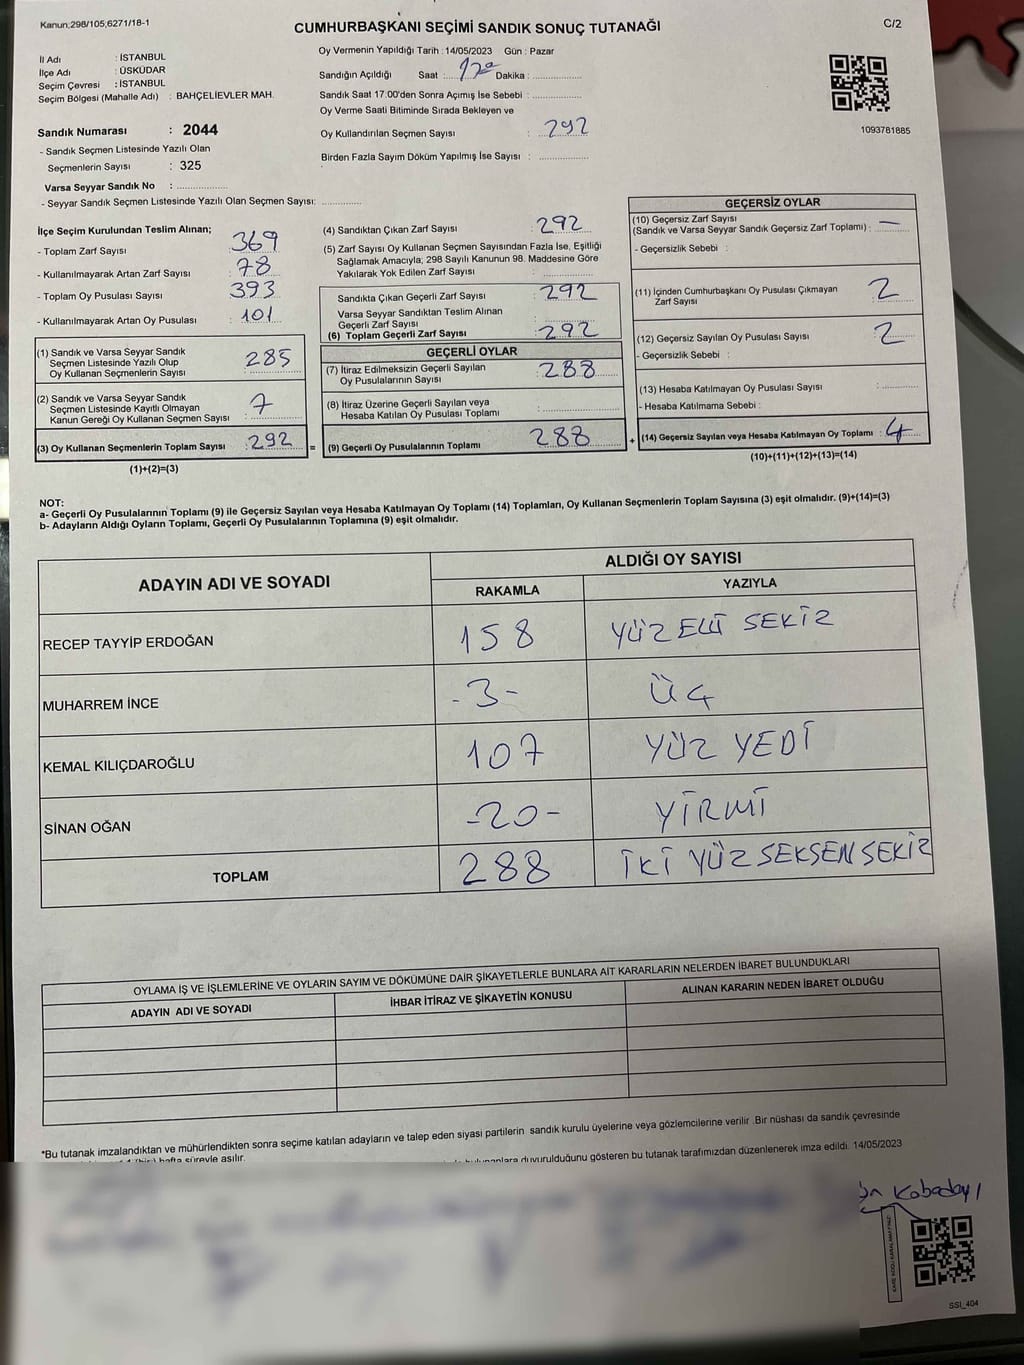 Kanun;298/105,6271/18-1
CUMHURBAŞKANI SEÇİMİ SANDIK SONUÇ TUTANAĞI
C/2
İl Adı : İSTANBUL
İlçe Adı : ÜSKÜDAR
Seçim Çevresi : İSTANBUL
Seçim Bölgesi (Mahalle Adı) : BAHÇELİEVLER MAH.
Sandık Numarası : 2044
- Sandık Seçmen Listesinde Yazılı Olan
Seçmenlerin Sayısı : 325
Varsa Seyyar Sandık No : ..................
- Seyyar Sandık Seçmen Listesinde Yazılı Olan Seçmen Sayısı: ..............
Oy Vermenin Yapıldığı Tarih : 14/05/2023 Gün : Pazar
Sandığın Açıldığı Saat : Dakika : ..................
Sandık Saat 17.00'den Sonra Açımış İse Sebebi : ..................
Oy Verme Saati Bitiminde Sırada Bekleyen ve
Oy Kullandırılan Seçmen Sayısı : 292
Birden Fazla Sayım Döküm Yapılmış İse Sayısı : ..................
1093781885
İlçe Seçim Kurulundan Teslim Alınan;
- Toplam Zarf Sayısı : 369
- Kullanılmayarak Artan Zarf Sayısı : 78
- Toplam Oy Pusulası Sayısı : 393
- Kullanılmayarak Artan Oy Pusulası : 101
(1) Sandık ve Varsa Seyyar Sandık
Seçmen Listesinde Yazılı Olup
Oy Kullanan Seçmenlerin Sayısı : 285
(2) Sandık ve Varsa Seyyar Sandık
Seçmen Listesinde Kayıtlı Olmayan
Kanun Gereği Oy Kullanan Seçmen Sayısı : 7
(3) Oy Kullanan Seçmenlerin Toplam Sayısı : 292 =
(1)+(2)=(3)
(4) Sandıktan Çıkan Zarf Sayısı : 292
(5) Zarf Sayısı Oy Kullanan Seçmen Sayısından Fazla İse, Eşitliği
Sağlamak Amacıyla; 298 Sayılı Kanunun 98. Maddesine Göre
Yakılarak Yok Edilen Zarf Sayısı : ..................
Sandıkta Çıkan Geçerli Zarf Sayısı : 292
Varsa Seyyar Sandıktan Teslim Alınan
Geçerli Zarf Sayısı : ..................
(6) Toplam Geçerli Zarf Sayısı : 292
GEÇERLİ OYLAR
(7) İtiraz Edilmeksizin Geçerli Sayılan
Oy Pusulalarının Sayısı : 288
(8) İtiraz Üzerine Geçerli Sayılan veya
Hesaba Katılan Oy Pusulası Toplamı : ..................
(9) Geçerli Oy Pusulalarının Toplamı : 288 +
GEÇERSİZ OYLAR
(10) Geçersiz Zarf Sayısı
(Sandık ve Varsa Seyyar Sandık Geçersiz Zarf Toplamı) : —
- Geçersizlik Sebebi :
(11) İçinden Cumhurbaşkanı Oy Pusulası Çıkmayan
Zarf Sayısı : 2
(12) Geçersiz Sayılan Oy Pusulası Sayısı : 2
- Geçersizlik Sebebi :
(13) Hesaba Katılmayan Oy Pusulası Sayısı : ..................
- Hesaba Katılmama Sebebi :
(14) Geçersiz Sayılan veya Hesaba Katılmayan Oy Toplamı : 4
(10)+(11)+(12)+(13)=(14)
NOT:
a- Geçerli Oy Pusulalarının Toplamı (9) ile Geçersiz Sayılan veya Hesaba Katılmayan Oy Toplamı (14) Toplamları, Oy Kullanan Seçmenlerin Toplam Sayısına (3) eşit olmalıdır. (9)+(14)=(3)
b- Adayların Aldığı Oyların Toplamı, Geçerli Oy Pusulalarının Toplamına (9) eşit olmalıdır.
ADAYIN ADI VE SOYADI
ALDIĞI OY SAYISI
RAKAMLA YAZIYLA
RECEP TAYYİP ERDOĞAN 158 YÜZ ELLİ SEKİZ
MUHARREM İNCE -3- ÜÇ
KEMAL KILIÇDAROĞLU 107 YÜZ YEDİ
SİNAN OĞAN -20- YİRMİ
TOPLAM 288 İKİ YÜZ SEKSEN SEKİZ
OYLAMA İŞ VE İŞLEMLERİNE VE OYLARIN SAYIM VE DÖKÜMÜNE DAİR ŞİKAYETLERLE BUNLARA AİT KARARLARIN NELERDEN İBARET BULUNDUKLARI
ADAYIN ADI VE SOYADI İHBAR İTİRAZ VE ŞİKAYETİN KONUSU ALINAN KARARIN NEDEN İBARET OLDUĞU
*Bu tutanak imzalandıktan ve mühürlendikten sonra seçime katılan adayların ve talep eden siyasi partilerin sandık kurulu üyelerine veya gözlemcilerine verilir .Bir nüshası da sandık çevresinde
hafta süreyle asılır.
duyurulduğunu gösteren bu tutanak tarafımızdan düzenlenerek imza edildi. 14/05/2023
Kabadayı
SSI_404